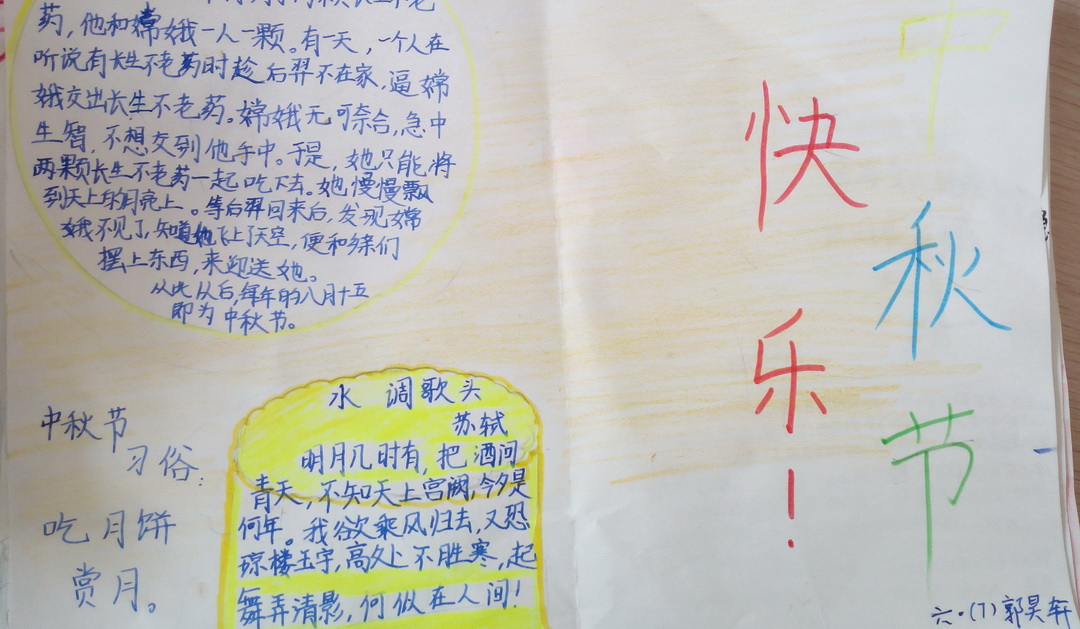 药，他和嫦娥一人一颗。有一天，一个人在
听说有长生不老药时趁后羿不在家，逼嫦
娥交出长生不老药。嫦娥无可奈合，急中
生智，不想交到他手中。于是，她只能将
两颗长生不老药一起吃下去。她慢慢飘
到天上的月亮上。等后羿回来后，发现嫦
娥不见了，知道她飞上了天空，便和乡亲们
摆上东西，来迎送她。
从此从后，每年的八月十五
即为中秋节。
中秋节
习俗：
吃月饼
赏月。
水调歌头
苏轼
明月几时有，把酒问
青天，不知天上宫阙，今夕是
何年。我欲乘风归去，又恐
琼楼玉宇，高处上不胜寒，起
舞弄清影，何似在人间！
中秋节
快乐！
六·(7)郭昊轩